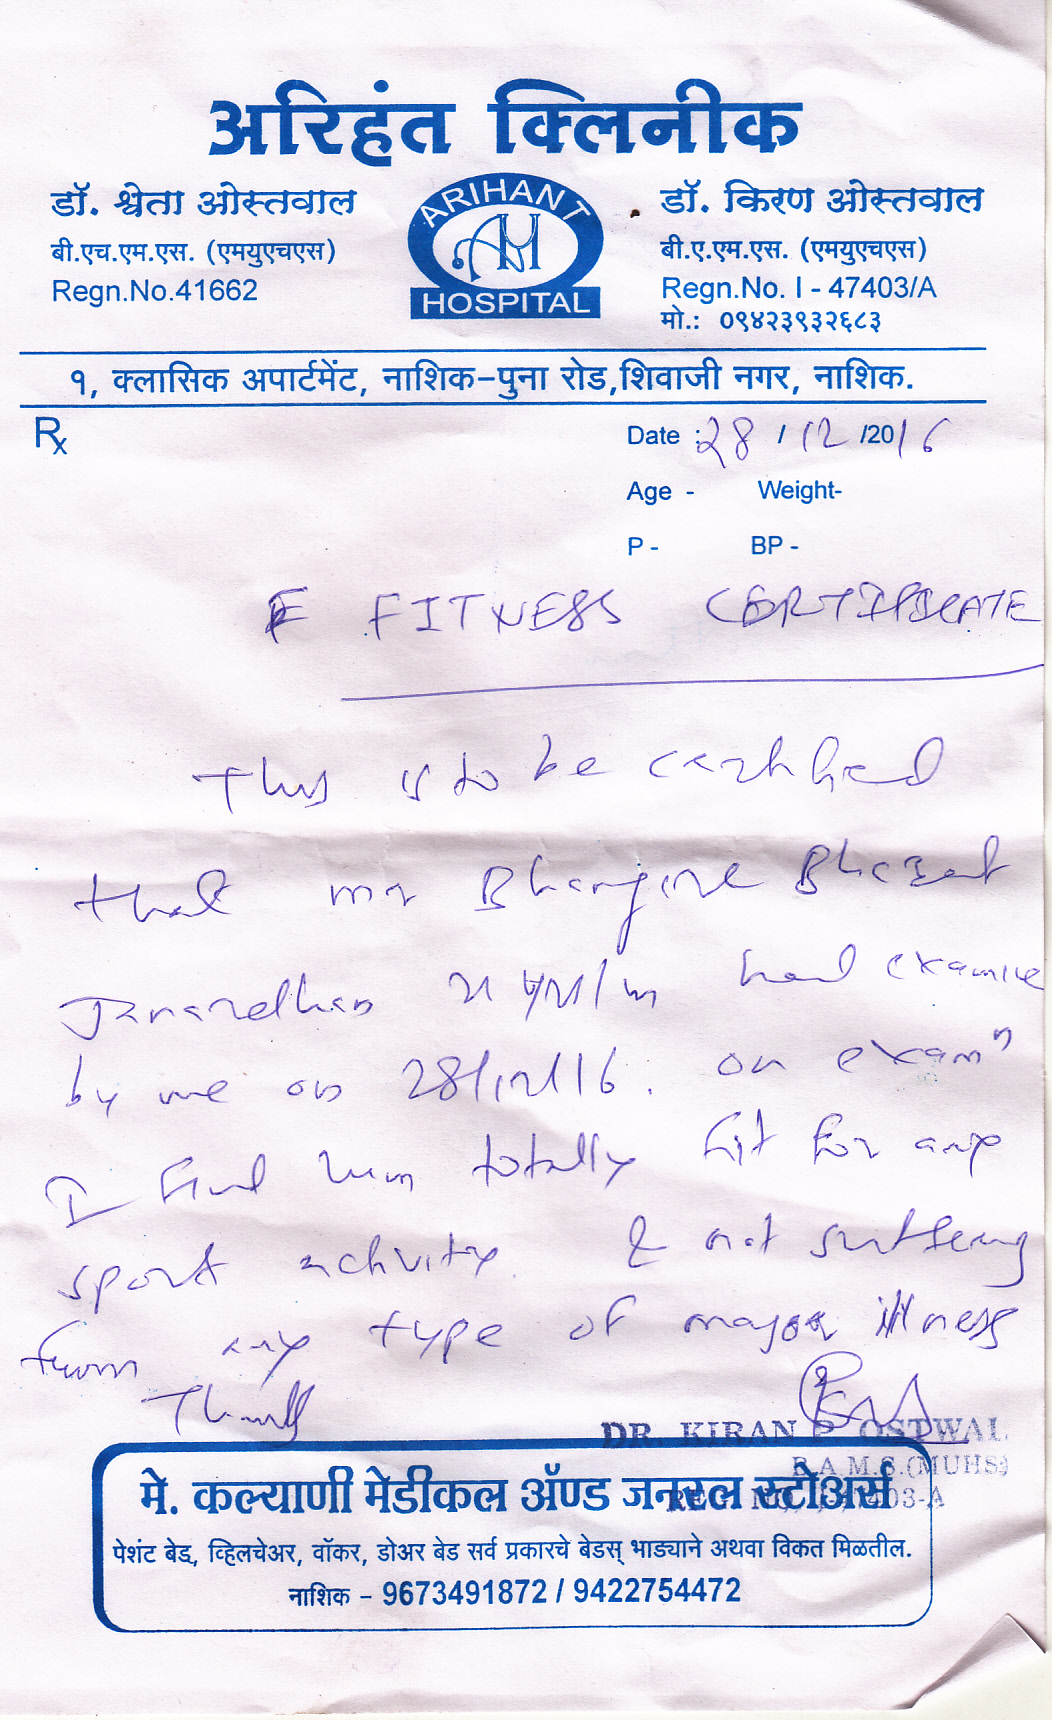 अरिहंत क्लिनीक
डॉ. श्वेता ओस्तवाल
बी.एच.एम.एस. (एमयुएचएस)
Regn.No.41662
ARIHANT
HOSPITAL
डॉ. किरण ओस्तवाल
बी.ए.एम.एस. (एमयुएचएस)
Regn.No. I - 47403/A
मो.: ०९४२३९३२६८३
१, क्लासिक अपार्टमेंट, नाशिक-पुना रोड,शिवाजी नगर, नाशिक.
Rx
Date : 28 / 12 /2016
Age - Weight-
P - BP -
F FITNESS CERTIFICATE
This is to be
that mr Bhagat
Janardhan had examine
by me on 28/12/16. on examⁿ
I find him totally fit for any
sport activity & not suffering
from any type of major illness
DR. KIRAN P OSTWAL
B.A.M.S.(MUHS)
मे. कल्याणी मेडीकल ॲण्ड जनरल स्टोअर्स
पेशंट बेड, व्हिलचेअर, वॉकर, डोअर बेड सर्व प्रकारचे बेडस् भाड्याने अथवा विकत मिळतील.
नाशिक - 9673491872 / 9422754472